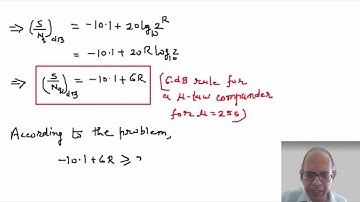 ⇒ (S/N_q)_dB = -10.1 + 20 log_10 2^R
= -10.1 + 20R log_10 2
⇒ (S/N_q)_dB = -10.1 + 6R (6-dB rule for
a μ-law compander
for μ=255)
According to the problem,
-10.1 + 6R ≥